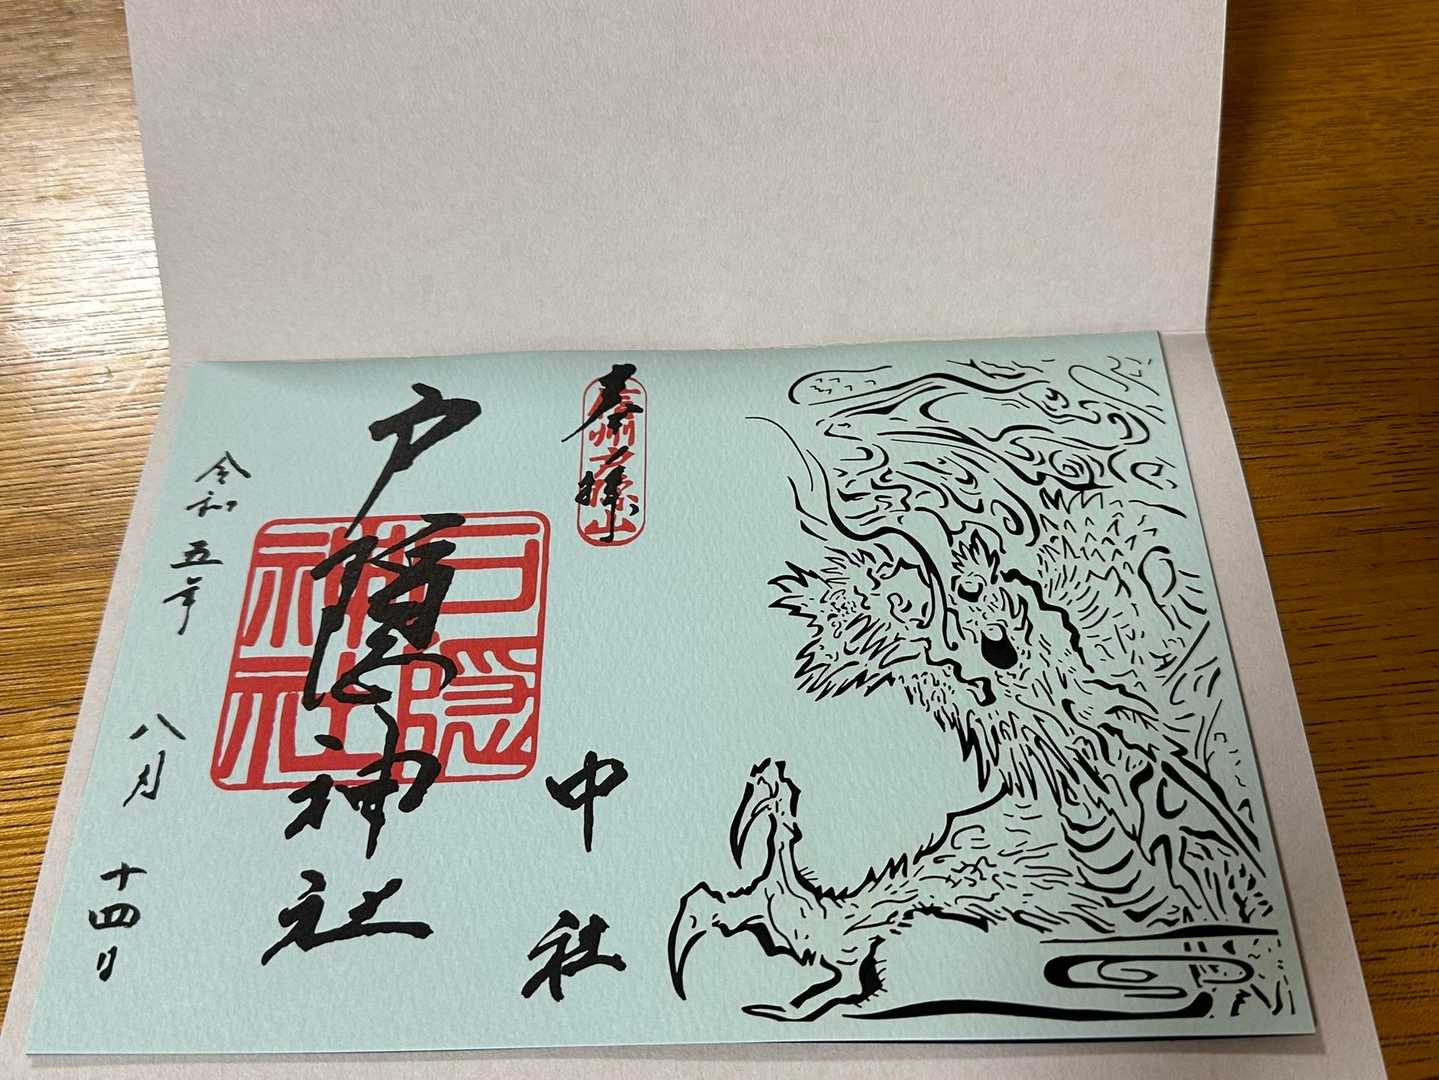 奉拝
信州戸隠山
中社
戸隠神社
戸隠神社
令和五年 八月 十四日